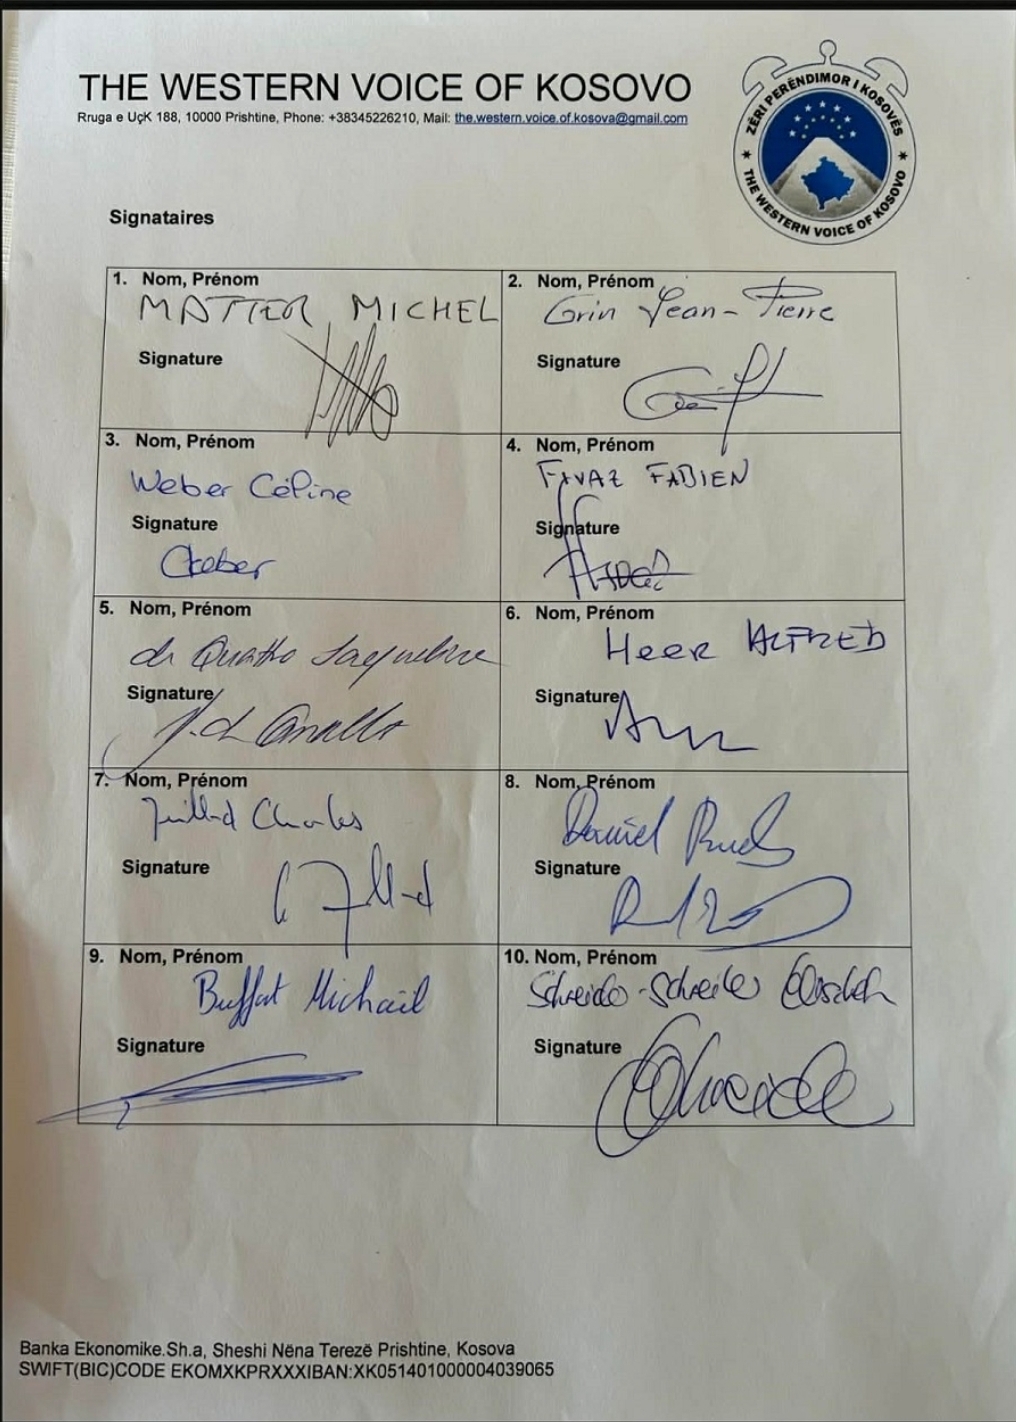 THE WESTERN VOICE OF KOSOVO
Rruga e UçK 188, 10000 Prishtine, Phone: +38345226210, Mail: the.western.voice.of.kosova@gmail.com
ZËRI PERËNDIMOR I KOSOVËS
THE WESTERN VOICE OF KOSOVO
Signataires
1. Nom, Prénom
MATTER, MICHEL
Signature
2. Nom, Prénom
Grin Jean-Pierre
Signature
3. Nom, Prénom
Weber Céline
Signature
CWeber
4. Nom, Prénom
FIVAZ FABIEN
Signature
5. Nom, Prénom
de Quattro Jacqueline
Signature
6. Nom, Prénom
Heer ALFRED
Signature
7. Nom, Prénom
Juillard Charles
Signature
8. Nom, Prénom
Daniel Ruch
Signature
9. Nom, Prénom
Buffat Michaël
Signature
10. Nom, Prénom
Signature
Banka Ekonomike.Sh.a, Sheshi Nëna Terezë Prishtine, Kosova
SWIFT(BIC)CODE EKOMXKPRXXXIBAN:XK051401000004039065